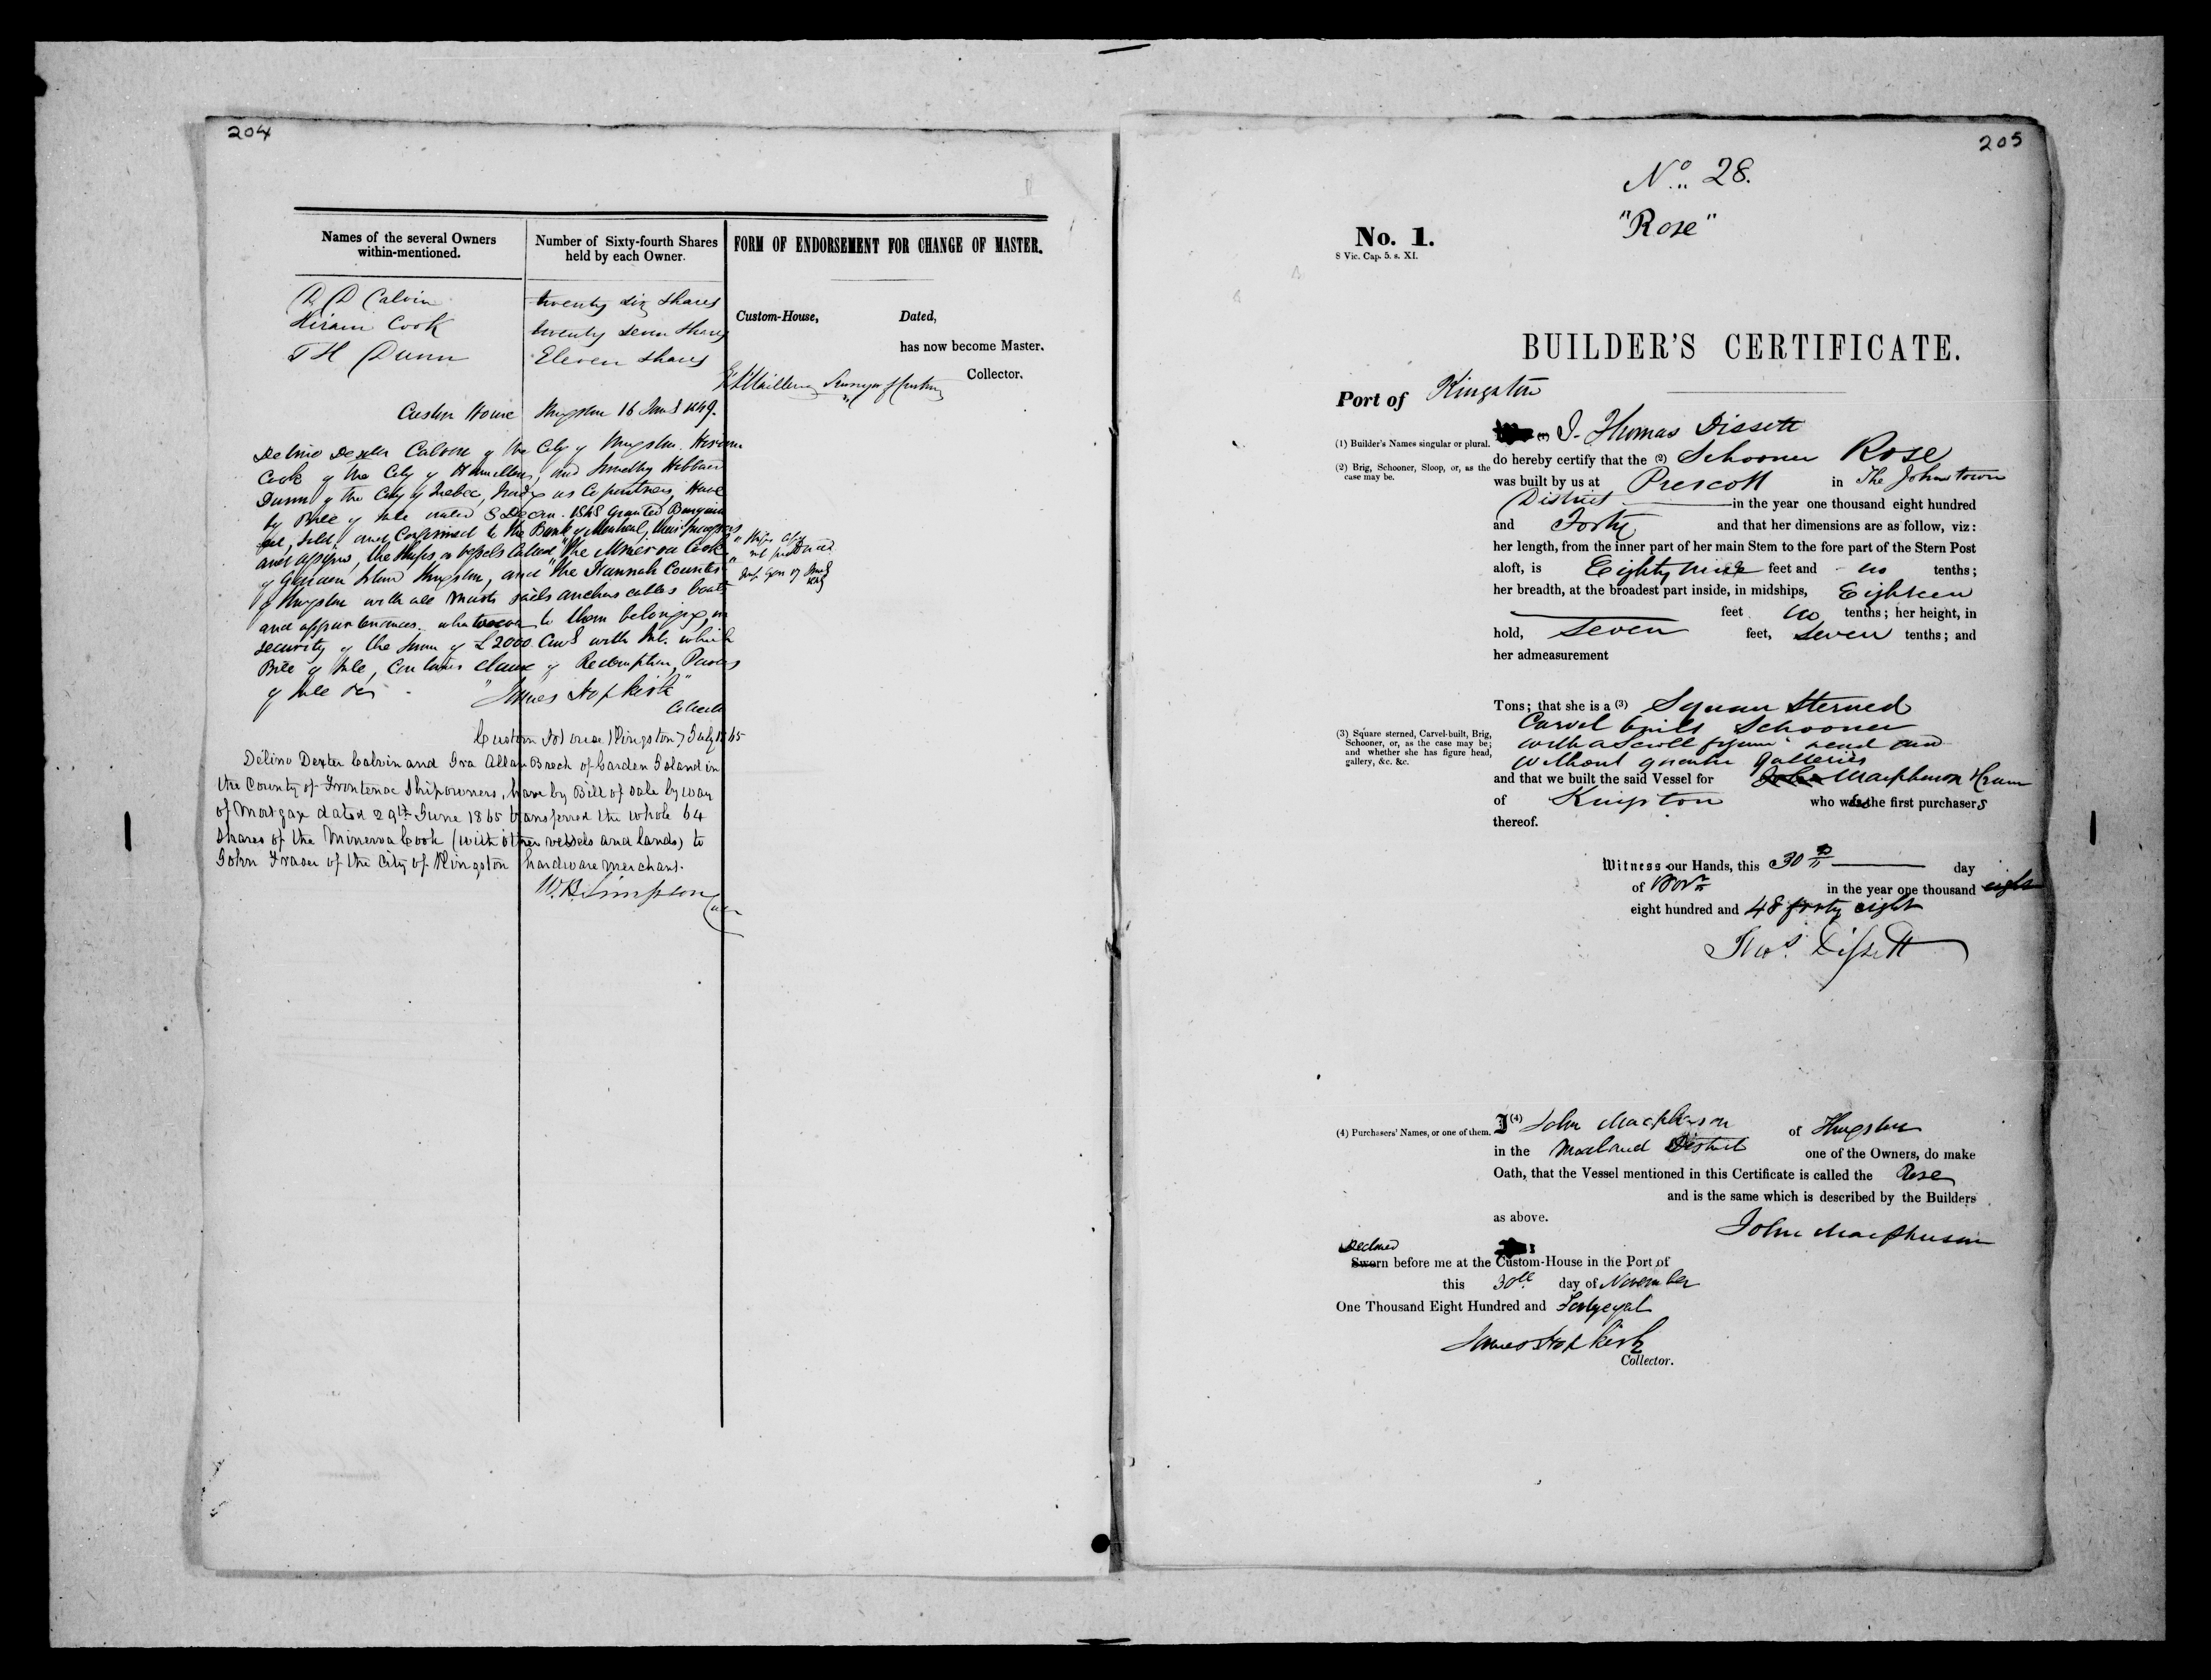 204
Names of the several Owners
within-mentioned.
Number of Sixty-fourth Shares
held by each Owner.
FORM OF ENDORSEMENT FOR CHANGE OF MASTER.
D D Calvin twenty six shares
Hiram Cook twenty seven shares
T H Dunn Eleven shares
Custom-House, Dated,
has now become Master.
Collector.
Custom House Kingston 16 Jany 1849.
Delino Dexter Calvin of the City of Kingston. Hiram
Cook of the City of Hamilton, and Timothy Hibbard
Dunn of the City of Quebec, trading as Copartners, Have
by Bill of Sale dated 8 Decem. 1848 Granted Bargained
sold, and Confirmed to the Bank of Montreal, their Successors
and assigns, the Ships or vessels called "the Minerva Cook"
of Garden Island Kingston, and "the Hannah Counter"
of Kingston with all masts sails anchors cables boats
and appurtenances whatsoever to them belonging, in
security of the sum of £2000 Curry with Int. which
Bill of Sale, contains clause of Redemption, Powers
of Sale &c
"James Hopkirk"
Collector
not produced
Custom House Kingston 7 July 1865
Delino Dexter Calvin and Ira Allan Breck of Garden Island in
the County of Frontenac Shipowners, have by Bill of Sale by way
of Mortgage dated 29th June 1865 transferred the whole 64
shares of the Minerva Cook (with other vessels and lands) to
John Fraser of the City of Kingston hardware merchant.
W.B. Simpson
205
No. 28.
"Rose"
No. 1.
8 Vic. Cap. 5. s. XI.
BUILDER'S CERTIFICATE.
Port of Kingston
(1) Builder's Names singular or plural.
(1) I Thomas Dissett
(2) Brig, Schooner, Sloop, or, as the
case may be.
do hereby certify that the (2) Schooner Rose
was built by us at Prescott in The Johnstown
District in the year one thousand eight hundred
and Forty and that her dimensions are as follow, viz:
her length, from the inner part of her main Stem to the fore part of the Stern Post
aloft, is Eighty nine feet and no tenths;
her breadth, at the broadest part inside, in midships, Eighteen
feet no tenths; her height, in
hold, Seven feet, Seven tenths; and
her admeasurement
Tons; that she is a (3) Square Sterned
Carvel built Schooner
with a Scroll figure head and
without quarter Galleries
(3) Square sterned, Carvel-built, Brig,
Schooner, or, as the case may be;
and whether she has figure head,
gallery, &c. &c.
and that we built the said Vessel for John Macpherson
of Kingston who was the first purchasers
thereof.
Witness our Hands, this 30th day
of Novr in the year one thousand eight
eight hundred and 48 forty eight
Thos. Dissett
(4) Purchasers' Names, or one of them.
I (4) John Macpherson of Kingston
in the Midland District one of the Owners, do make
Oath, that the Vessel mentioned in this Certificate is called the Rose
and is the same which is described by the Builders
as above.
John Macpherson
Declared
Sworn before me at the Custom-House in the Port of
this 30th day of November
One Thousand Eight Hundred and Forty eight
James Hopkirk
Collector.